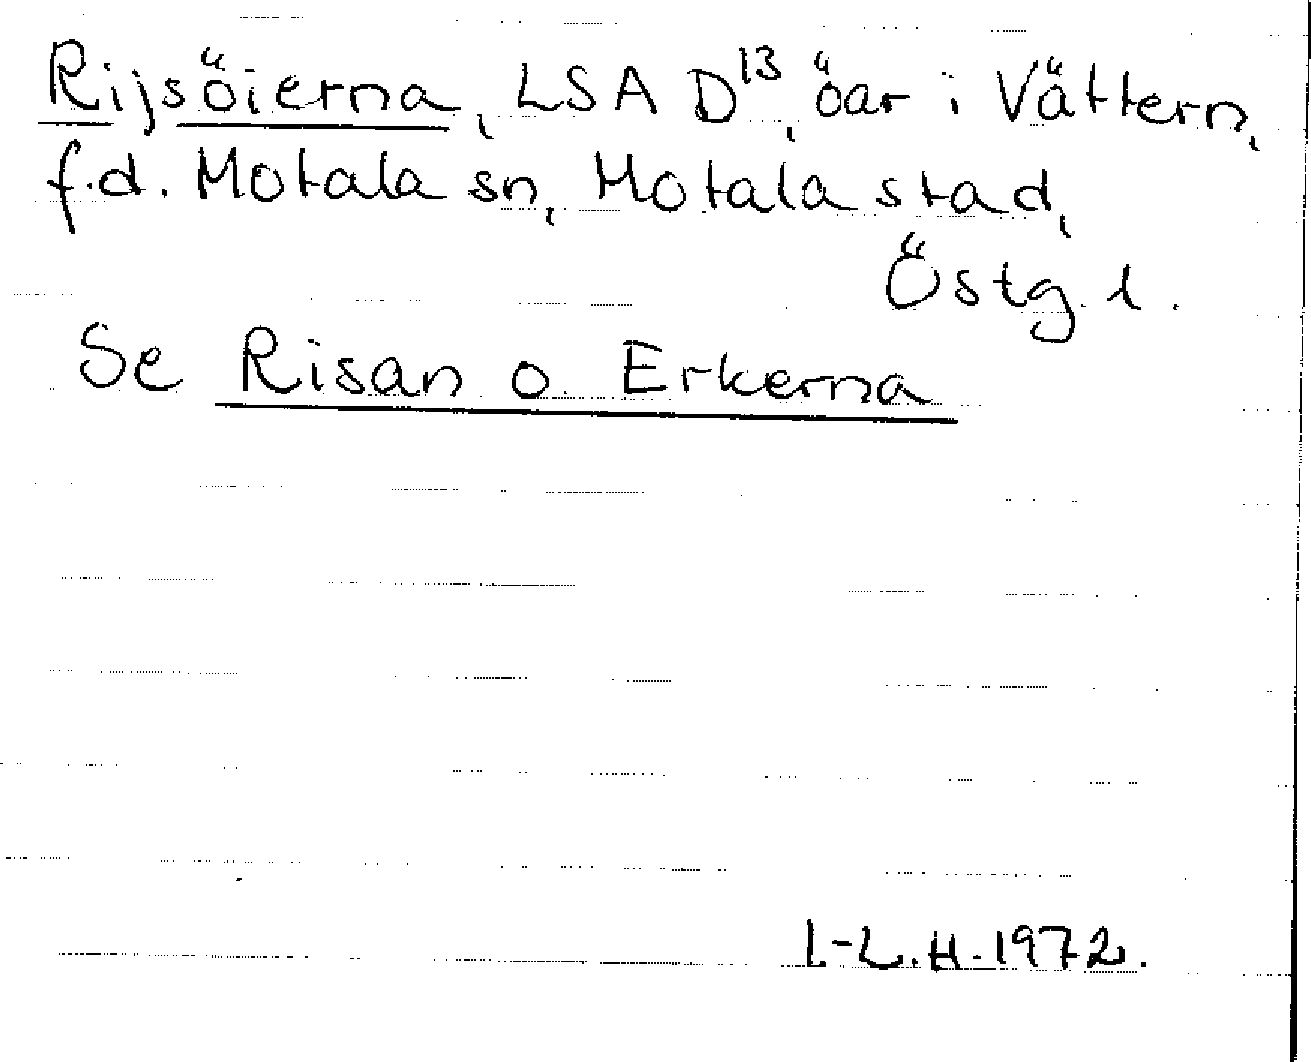 Rijsöierna, LSA D13, öar i Vättern,
f.d. Motala sn, Motala stad,
Östg. l.
Se Risan o. Erkerna
I-L.H. 1972.